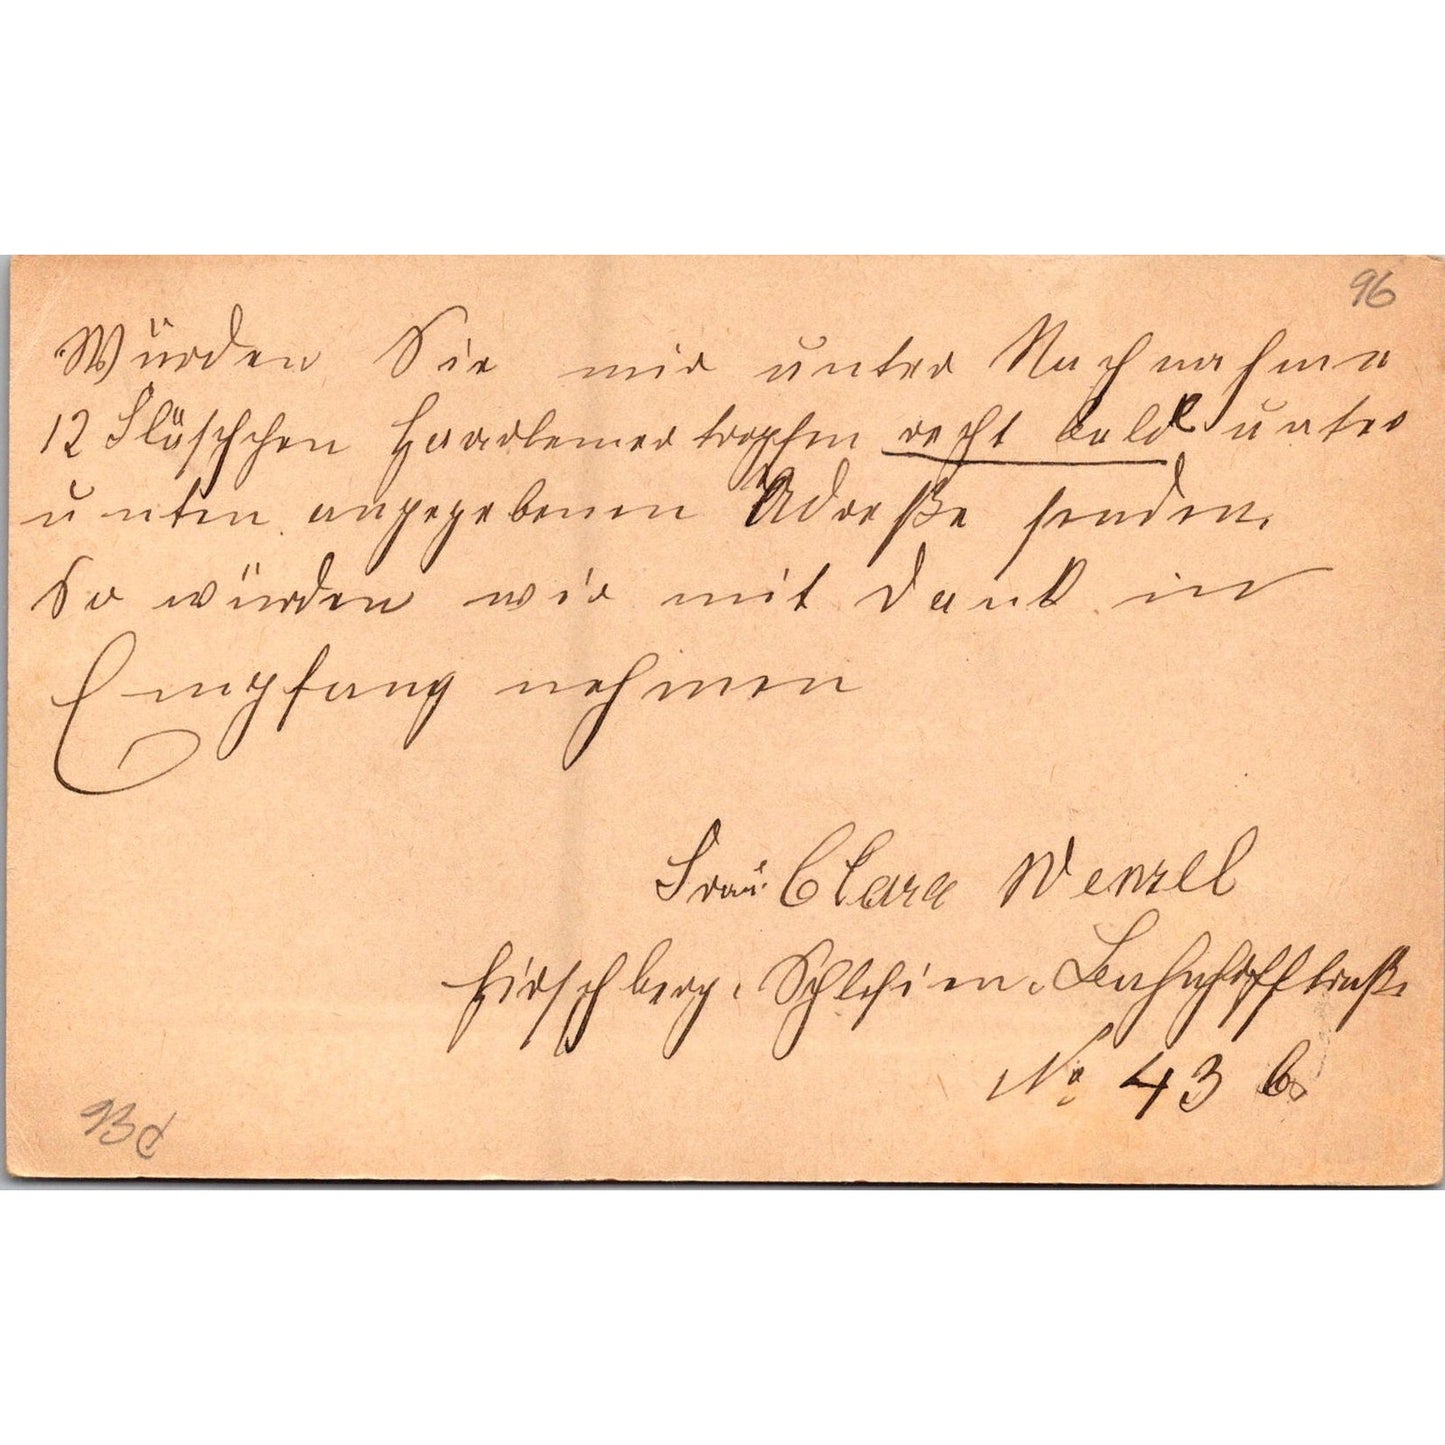 96
Würden Sie mir unter Nachnahme
12 Fläschchen Haarlemertropfen recht bald unter
unten angegebenen Adreße senden.
So würden wir mit Dank in
Empfang nehmen
Frau Clara Wenzel
Hirschberg. Schlesien. Bahnhofstraß.
No 43 b.
93d